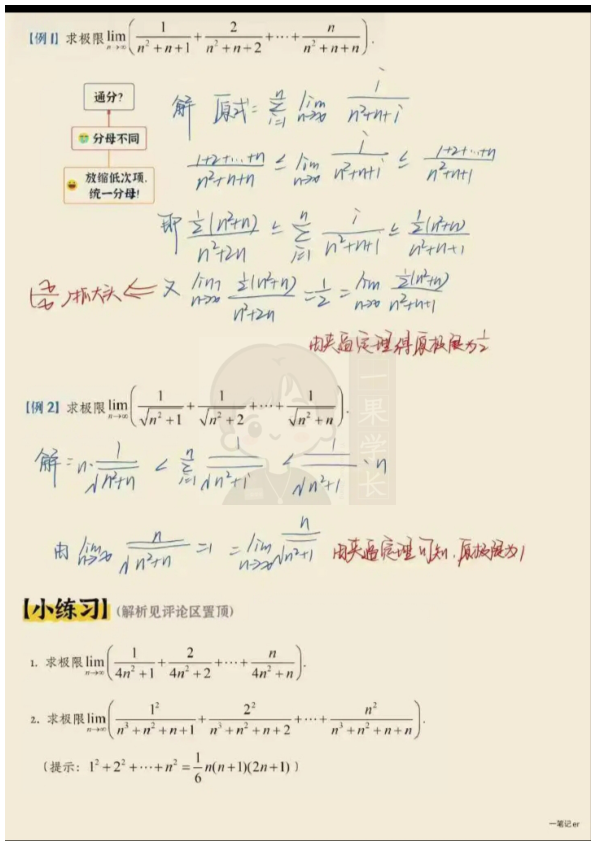 【例1】求极限 lim n→∞ (1/(n²+n+1) + 2/(n²+n+2) + ⋯ + n/(n²+n+n)).
通分?
分母不同
放缩低次项,
统一分母!
解 原式= Σ i=1 n lim n→∞ i/(n²+n+i)
(1+2+...+n)/(n²+n+n) ≤ lim n→∞ i/(n²+n+i) ≤ (1+2+...+n)/(n²+n+1)
即 ½(n²+n)/(n²+2n) ≤ Σ i=1 n i/(n²+n+i) ≤ ½(n²+n)/(n²+n+1)
(∞/∞)抓大头 ⇐ 又 lim n→∞ ½(n²+n)/(n²+2n) = 1/2 = lim n→∞ ½(n²+n)/(n²+n+1)
由夹逼定理得原极限为½
一果学长
【例2】求极限 lim n→∞ (1/√(n²+1) + 1/√(n²+2) + ⋯ + 1/√(n²+n)).
解= n·1/√(n²+n) < Σ i=1 n 1/√(n²+i) < 1/√(n²+1) ·n
由 lim n→∞ n/√(n²+n) =1 = lim n→∞ n/√(n²+1) 由夹逼定理可知,原极限为1
【小练习】(解析见评论区置顶)
1. 求极限 lim n→∞ (1/(4n²+1) + 2/(4n²+2) + ⋯ + n/(4n²+n)).
2. 求极限 lim n→∞ (1²/(n³+n²+n+1) + 2²/(n³+n²+n+2) + ⋯ + n²/(n³+n²+n+n)).
(提示: 1²+2²+⋯+n²=1/6 n(n+1)(2n+1))
一笔记er